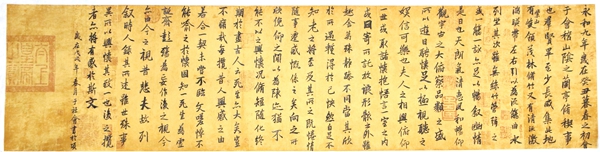 永和九年歲在癸丑暮春之初會
于會稽山陰之蘭亭脩稧事
也羣賢畢至少長咸集此地
有崇山峻領茂林脩竹又有清流激
湍暎帶左右引以為流觴曲水
列坐其次雖無絲竹管弦之
盛一觴一詠亦足以暢敘幽情
是日也天朗氣清惠風和暢仰
觀宇宙之大俯察品類之盛
所以遊目騁懷足以極視聽之
娛信可樂也夫人之相與俯仰
一世或取諸懷抱悟言一室之內
或因寄所託放浪形骸之外雖
趣舍萬殊靜躁不同當其欣
於所遇暫得於己怏然自足不
知老之將至及其所之既惓情
隨事遷感慨係之矣向之所
欣俛仰之閒以為陳迹猶不
能不以之興懷況脩短隨化終
期於盡古人云死生亦大矣豈
不痛哉每攬昔人興感之由
若合一契未嘗不臨文嗟悼不
能喻之於懷固知一死生為虛
誕齊彭殤為妄作後之視今
亦由今之視昔悲夫故列
敘時人錄其所述雖世殊事
異所以興懷其致一也後之攬
者亦將有感於斯文
歲在戊戌年春月